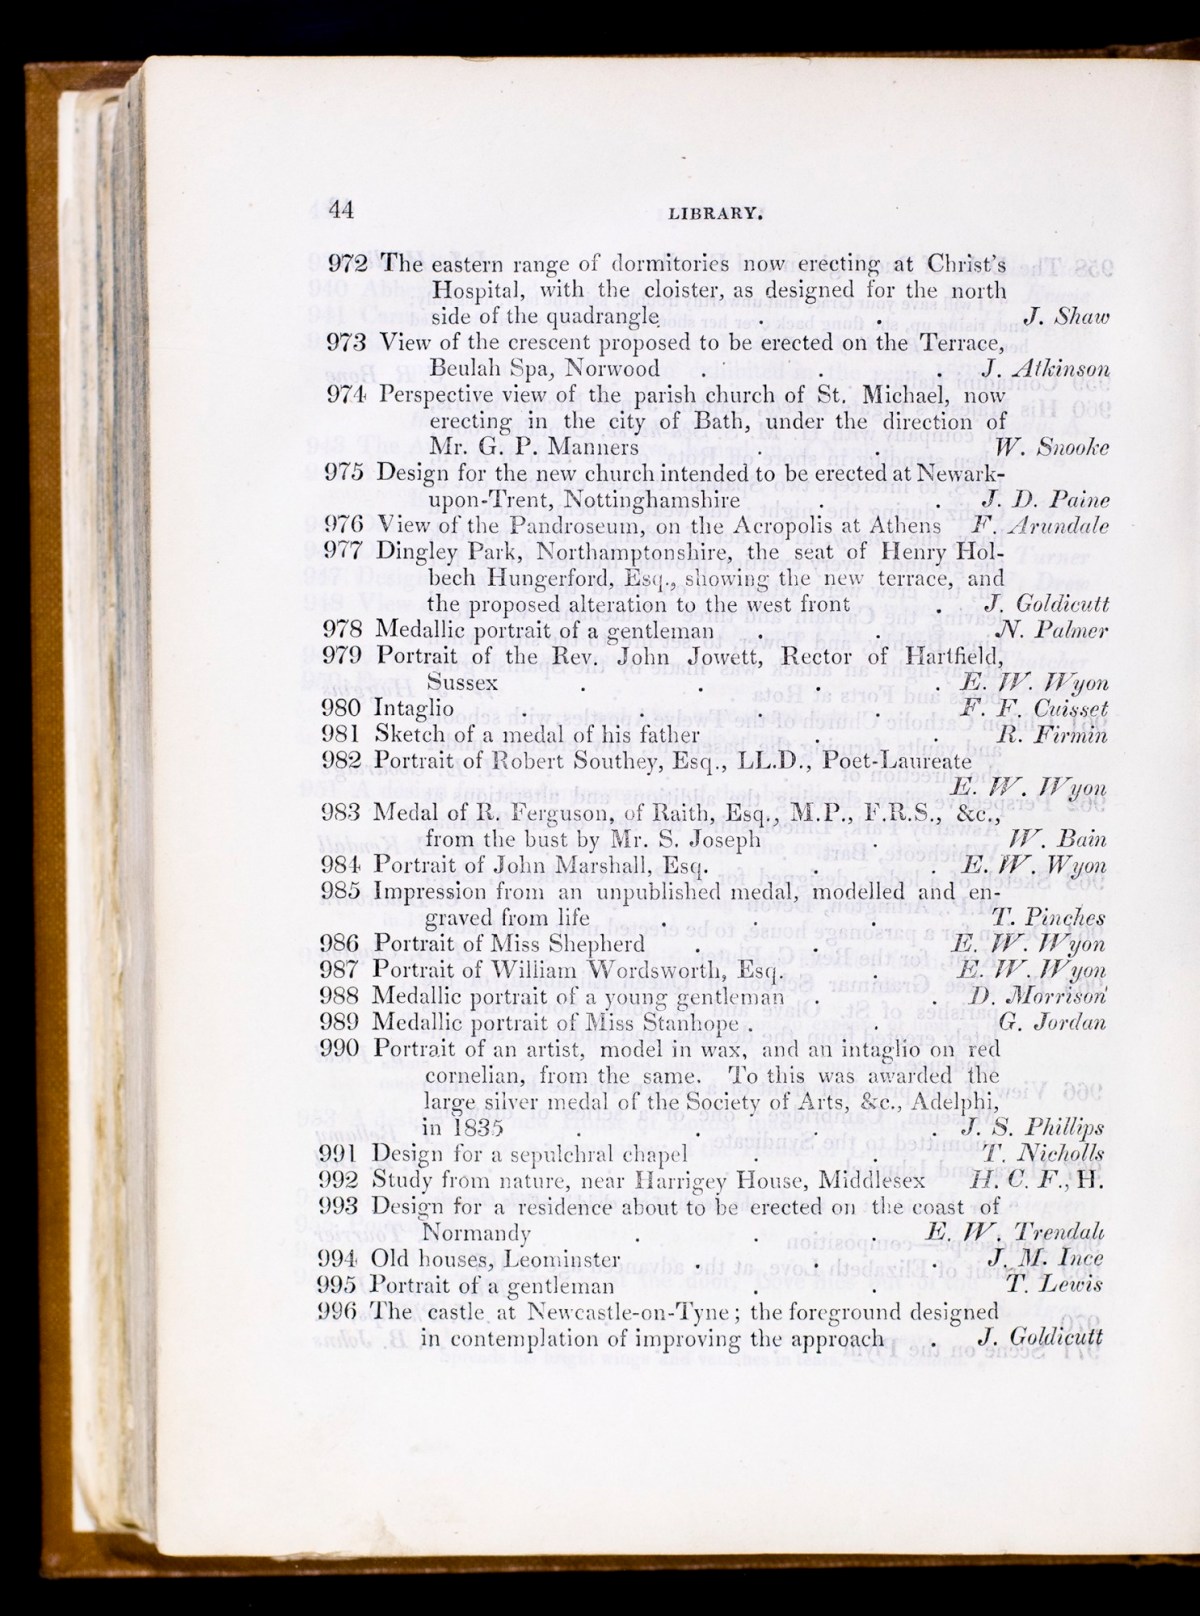 44 LIBRARY.
972 The eastern range of dormitories now erecting at Christ's
Hospital, with the cloister, as designed for the north
side of the quadrangle . . J. Shaw
973 View of the crescent proposed to be erected on the Terrace,
Beulah Spa, Norwood . . . J. Atkinson
974 Perspective view of the parish church of St. Michael, now
erecting in the city of Bath, under the direction of
Mr. G. P. Manners . . W. Snooke
975 Design for the new church intended to be erected at Newark-
upon-Trent, Nottinghamshire . . J. D. Paine
976 View of the Pandroseum, on the Acropolis at Athens F. Arundale
977 Dingley Park, Northamptonshire, the seat of Henry Hol-
bech Hungerford, Esq., showing the new terrace, and
the proposed alteration to the west front . J. Goldicutt
978 Medallic portrait of a gentleman . . N. Palmer
979 Portrait of the Rev. John Jowett, Rector of Hartfield,
Sussex . . . . E. W. Wyon
980 Intaglio . . . . F. F. Cuisset
981 Sketch of a medal of his father . . R. Firmin
982 Portrait of Robert Southey, Esq., LL.D., Poet-Laureate
E. W. Wyon
983 Medal of R. Ferguson, of Raith, Esq., M.P., F.R.S., &c.,
from the bust by Mr. S. Joseph . . W. Bain
984 Portrait of John Marshall, Esq. . . E. W. Wyon
985 Impression from an unpublished medal, modelled and en-
graved from life . . . T. Pinches
986 Portrait of Miss Shepherd . . E. W. Wyon
987 Portrait of William Wordsworth, Esq. . E. W. Wyon
988 Medallic portrait of a young gentleman . . D. Morrison
989 Medallic portrait of Miss Stanhope . . G. Jordan
990 Portrait of an artist, model in wax, and an intaglio on red
cornelian, from the same. To this was awarded the
large silver medal of the Society of Arts, &c., Adelphi,
in 1835 . . . . J. S. Phillips
991 Design for a sepulchral chapel . . T. Nicholls
992 Study from nature, near Harrigey House, Middlesex H. C. F., H.
993 Design for a residence about to be erected on the coast of
Normandy . . . E. W. Trendall
994 Old houses, Leominster . . . J. M. Ince
995 Portrait of a gentleman . . T. Lewis
996 The castle at Newcastle-on-Tyne; the foreground designed
in contemplation of improving the approach . J. Goldicutt